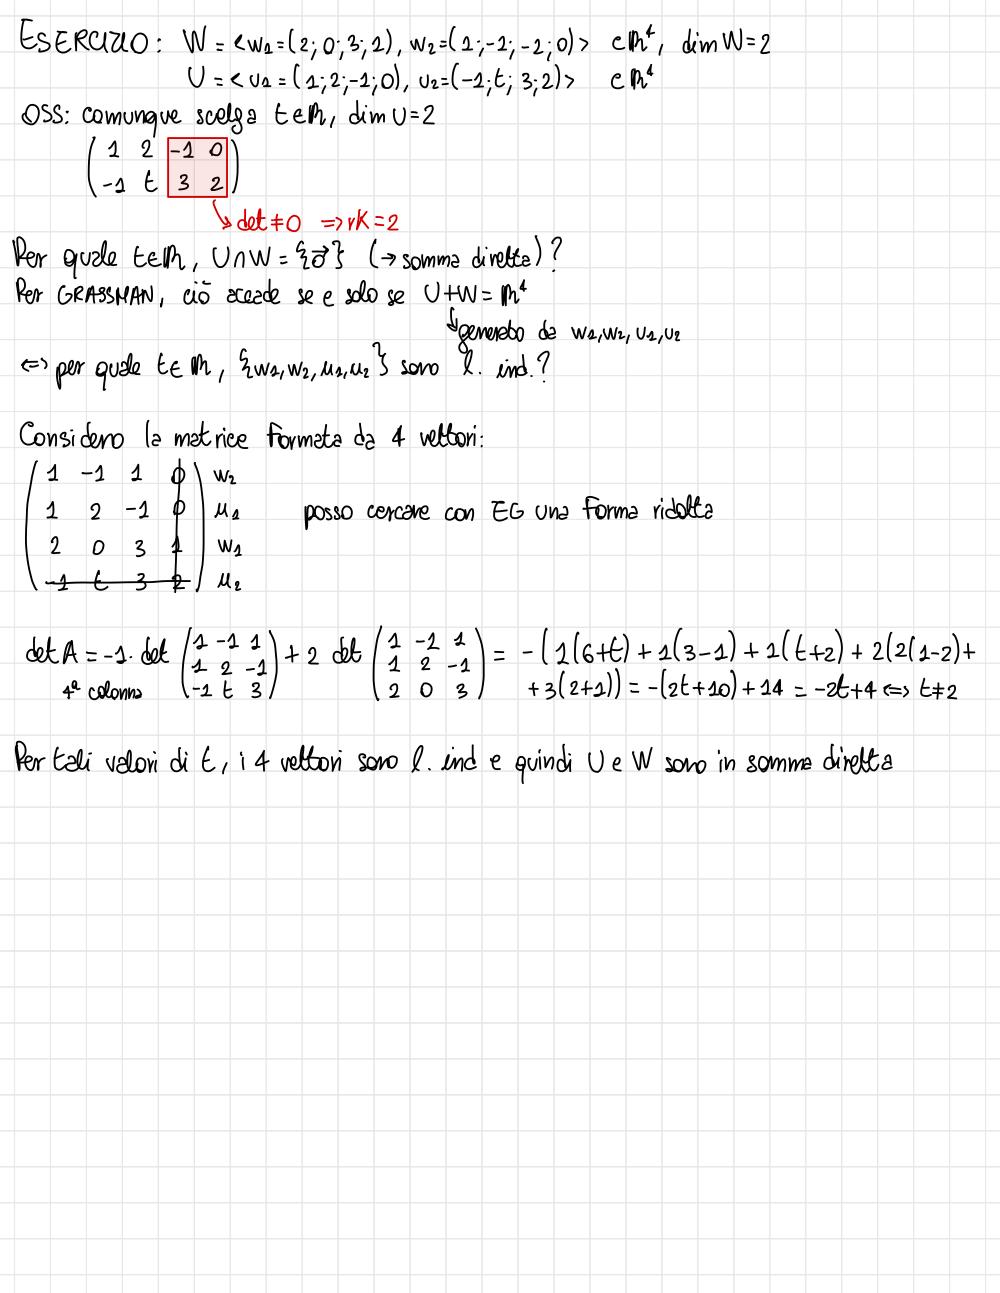 ESERCIZIO: W = <w1=(2; 0; 3; 1), w2=(1; -1; -1; 0)> ⊂ℝ⁴, dim W=2
U = <u1=(1; 2; -1; 0), u2=(-1; t; 3; 2)> ⊂ℝ⁴
OSS: comunque scelga t∈ℝ, dim U=2
( 1 2 -1 0
-1 t 3 2 )
↳ det≠0 ⇒ rK=2
Per quale t∈ℝ, U∩W = {0⃗} (→ somma diretta)?
Per GRASSMAN, ciò accade se e solo se U+W = ℝ⁴
↳ generato da w1,w2, u1,u2
⇔ per quale t∈ℝ, {w1,w2,u1,u2} sono l. ind.?
Considero la matrice formata da 4 vettori:
( 1 -1 1 0 ) w2
1 2 -1 0 u1 posso cercare con EG una forma ridotta
2 0 3 1 w1
-1 t 3 2 u2
det A = -1· det (1 -1 1 / 1 2 -1 / -1 t 3) + 2 det (1 -1 1 / 1 2 -1 / 2 0 3) = -(1(6+t) + 1(3-1) + 1(t+2) + 2(2(1-2)+
4ª colonna +3(2+1)) = -(2t+10)+14 = -2t+4 ⇔ t≠2
Per tali valori di t, i 4 vettori sono l. ind e quindi U e W sono in somma diretta